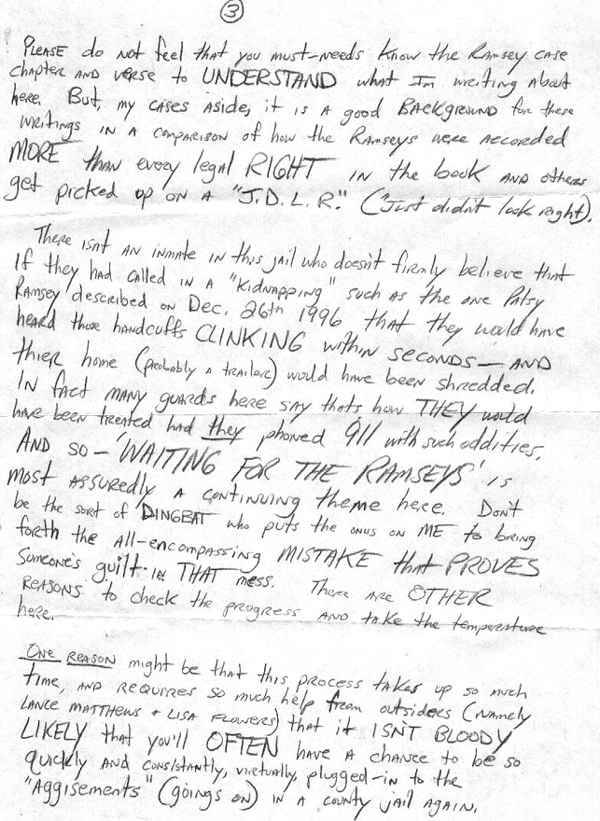 3
PLEASE do not feel that you must-needs know the Ramsey case
chapter AND verse to UNDERSTAND what I'm writing about
here. But, my cases aside, it is a good BACKGROUND for these
writings in a comparison of how the Ramseys were accorded
MORE than every legal RIGHT in the book AND others
get picked up on a "J.D.L.R." ("Just didn't look right).
There isn't an inmate in this jail who doesn't firmly believe that
If they had called in a "kidnapping" such as the one Patsy
Ramsey described on Dec. 26th 1996 that they would have
heard those handcuffs CLINKING within seconds — AND
thier home (probably a trailor) would have been shredded.
IN fact many guards here say thats how THEY would
have been treated had they phoned 911 with such oddities.
AND so - 'WAITING FOR THE RAMSEYS' is
most assuredly a continuing theme here. Don't
be the sort of DINGBAT who puts the onus on ME to bring
forth the all-encompassing MISTAKE that PROVES
someone's guilt in THAT mess. There are OTHER
REASONS to check the progress AND take the temperature
here.
ONE REASON might be that this process takes up so much
time, AND requires so much help from outsiders (namely
LANCE MATTHEWS + LISA FLOWERS) that it ISN'T BLOODY
LIKELY that you'll OFTEN have a chance to be so
quickly AND consistantly, virtually, plugged-in to the
"Aggisements" (goings on) in a county jail again.